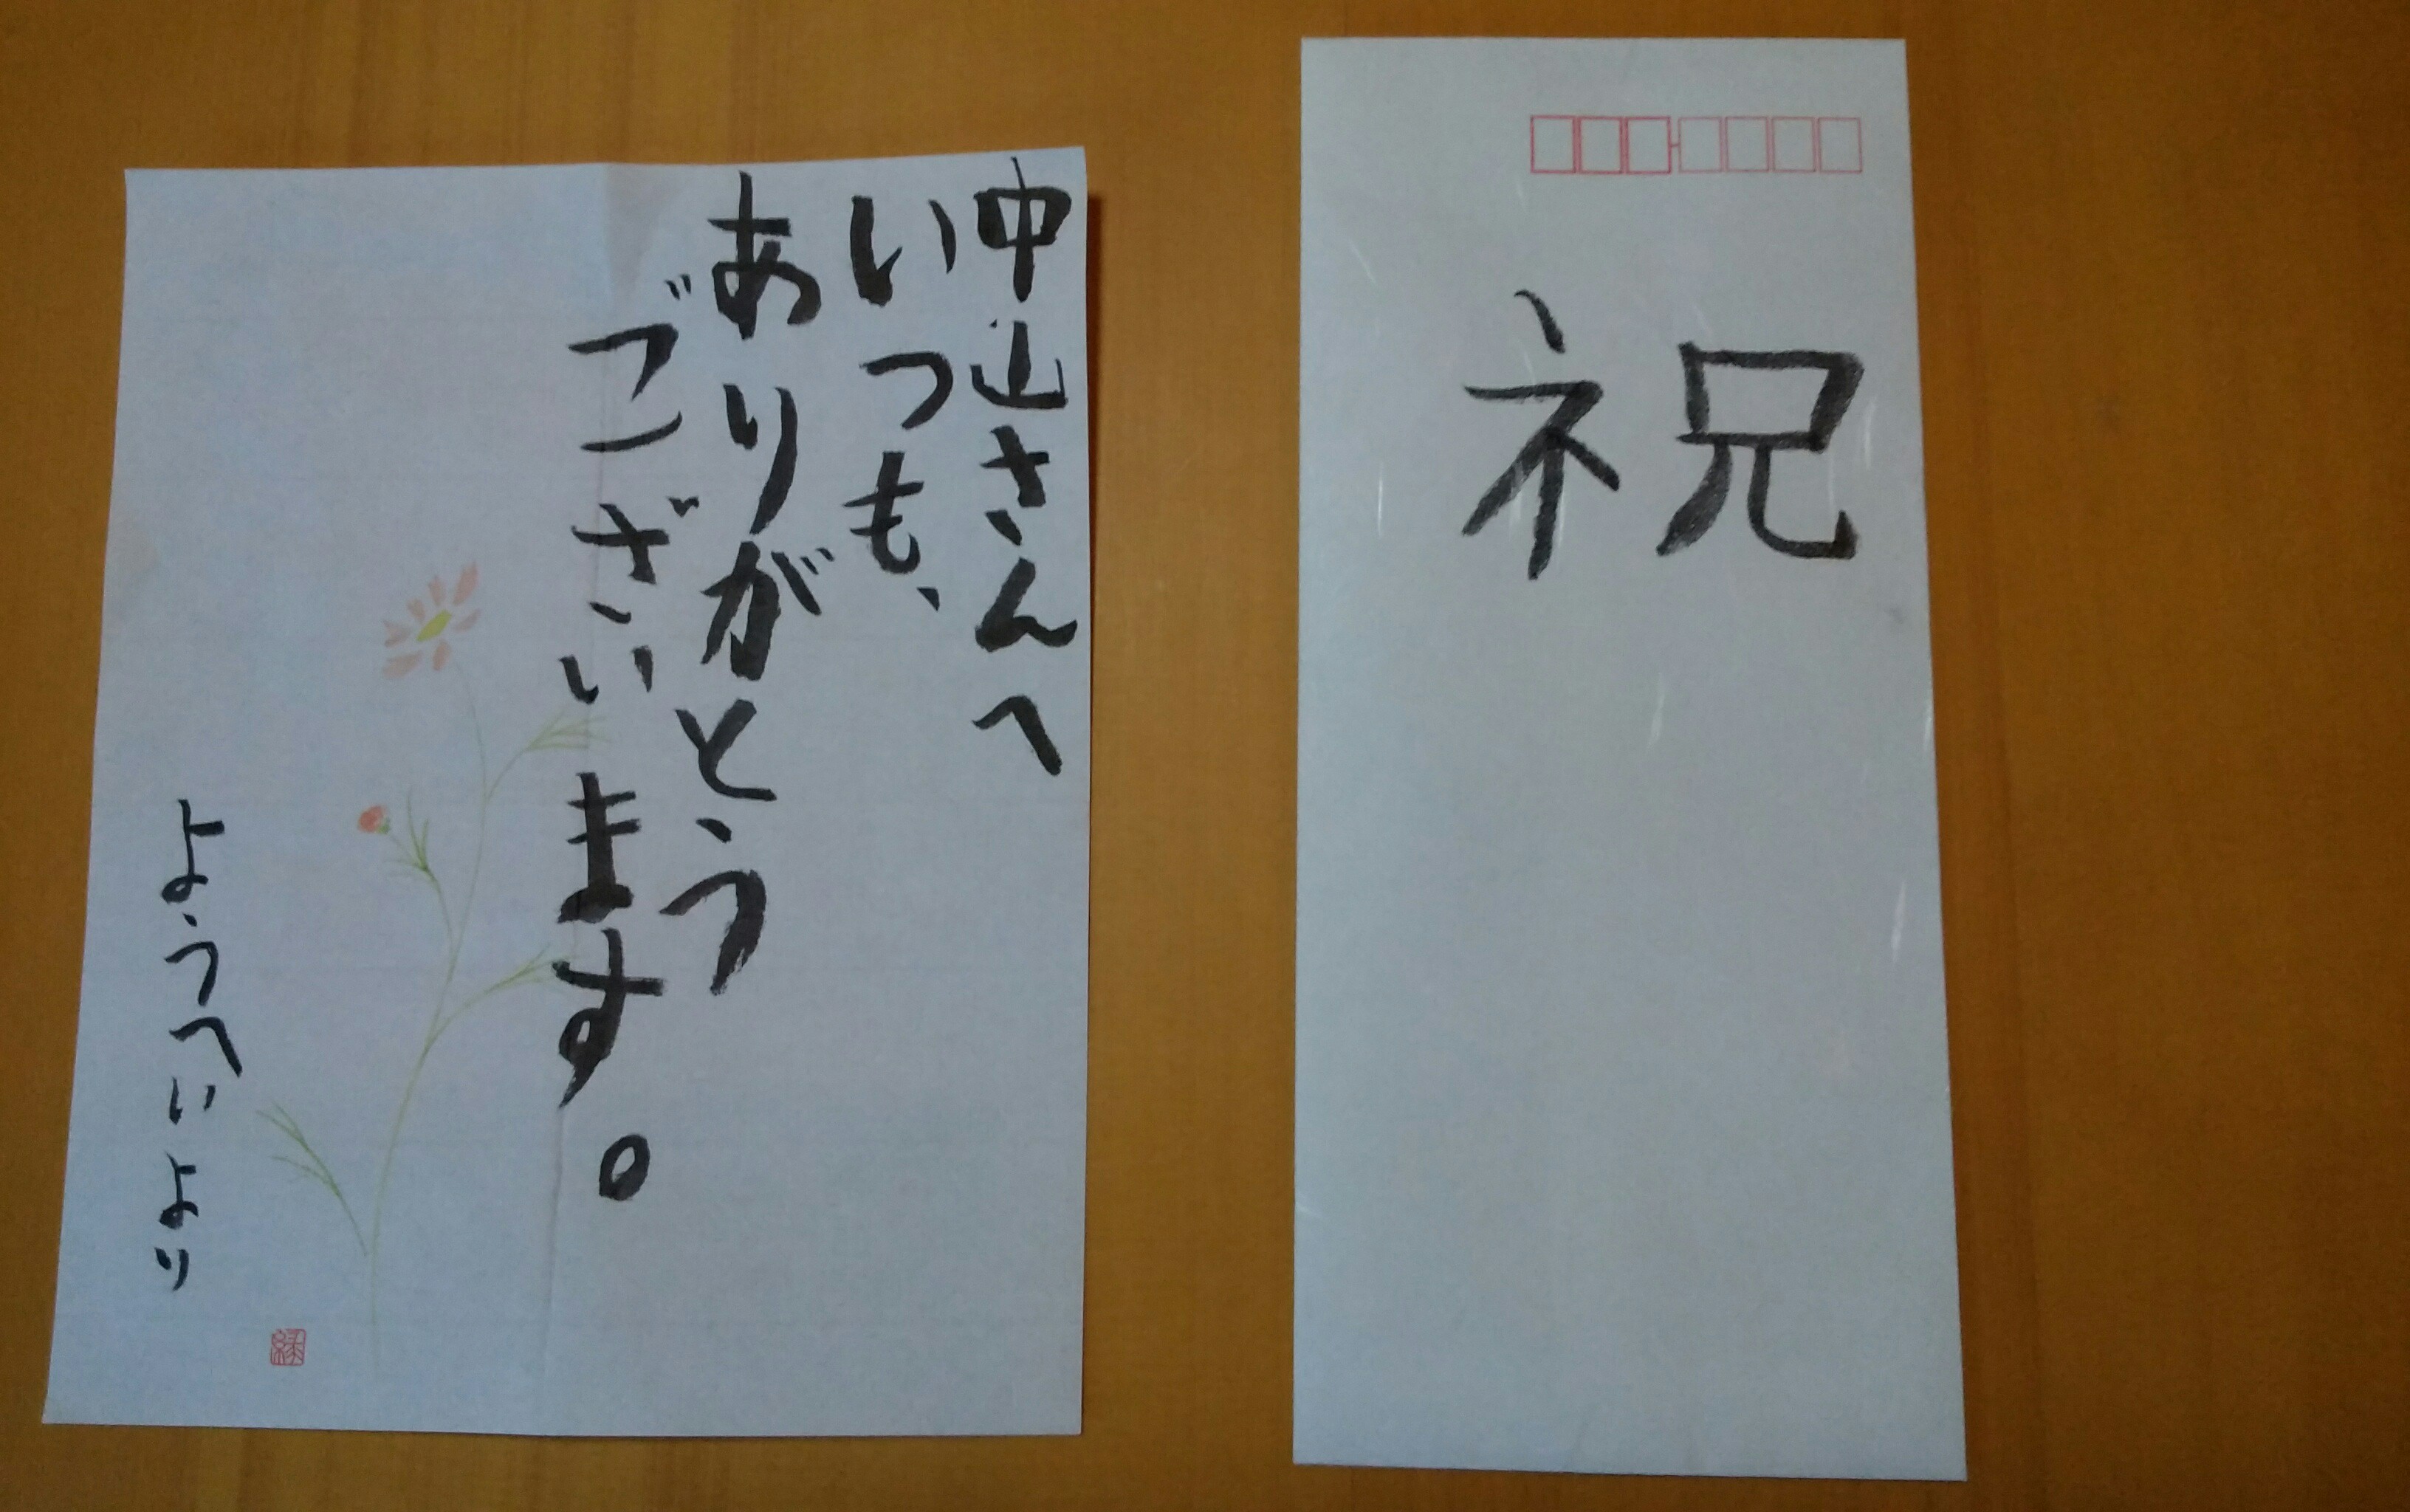 祝
中山さんへ
いつも、
ありがとう
ございます。
ようへいより
縁